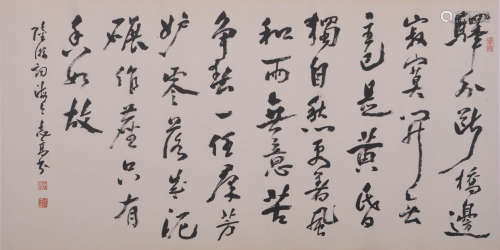 驛外斷橋邊
寂寞開無
主已是黃昏
獨自愁更著風
和雨無意苦
争春一任羣芳
妒零落成泥
碾作塵只有
香如故
陸游詞